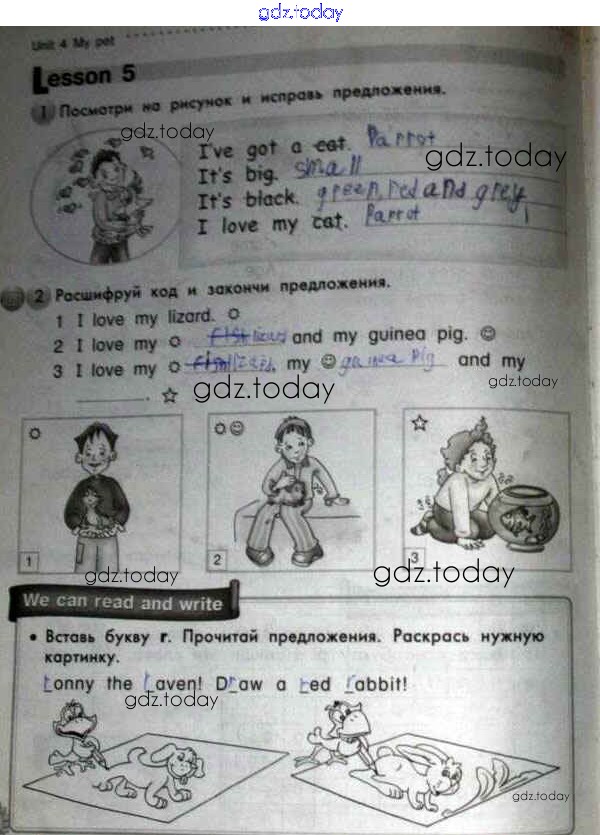 gdz.today
Unit 4 My pet
Lesson 5
1 Посмотри на рисунок и исправь предложения.
gdz.today
I've got a cat. Parrot
gdz.today
It's big. small
It's black. green, red and grey
I love my cat. Parrot
2 Расшифруй код и закончи предложения.
1 I love my lizard.
2 I love my fish lizard and my guinea pig.
3 I love my fish lizard, my guinea pig and my
gdz.today
gdz.today
________.
1
2
3
gdz.today
gdz.today
We can read and write
• Вставь букву r. Прочитай предложения. Раскрась нужную
картинку.
ronny the raven! Draw a red rabbit!
gdz.today
gdz.today